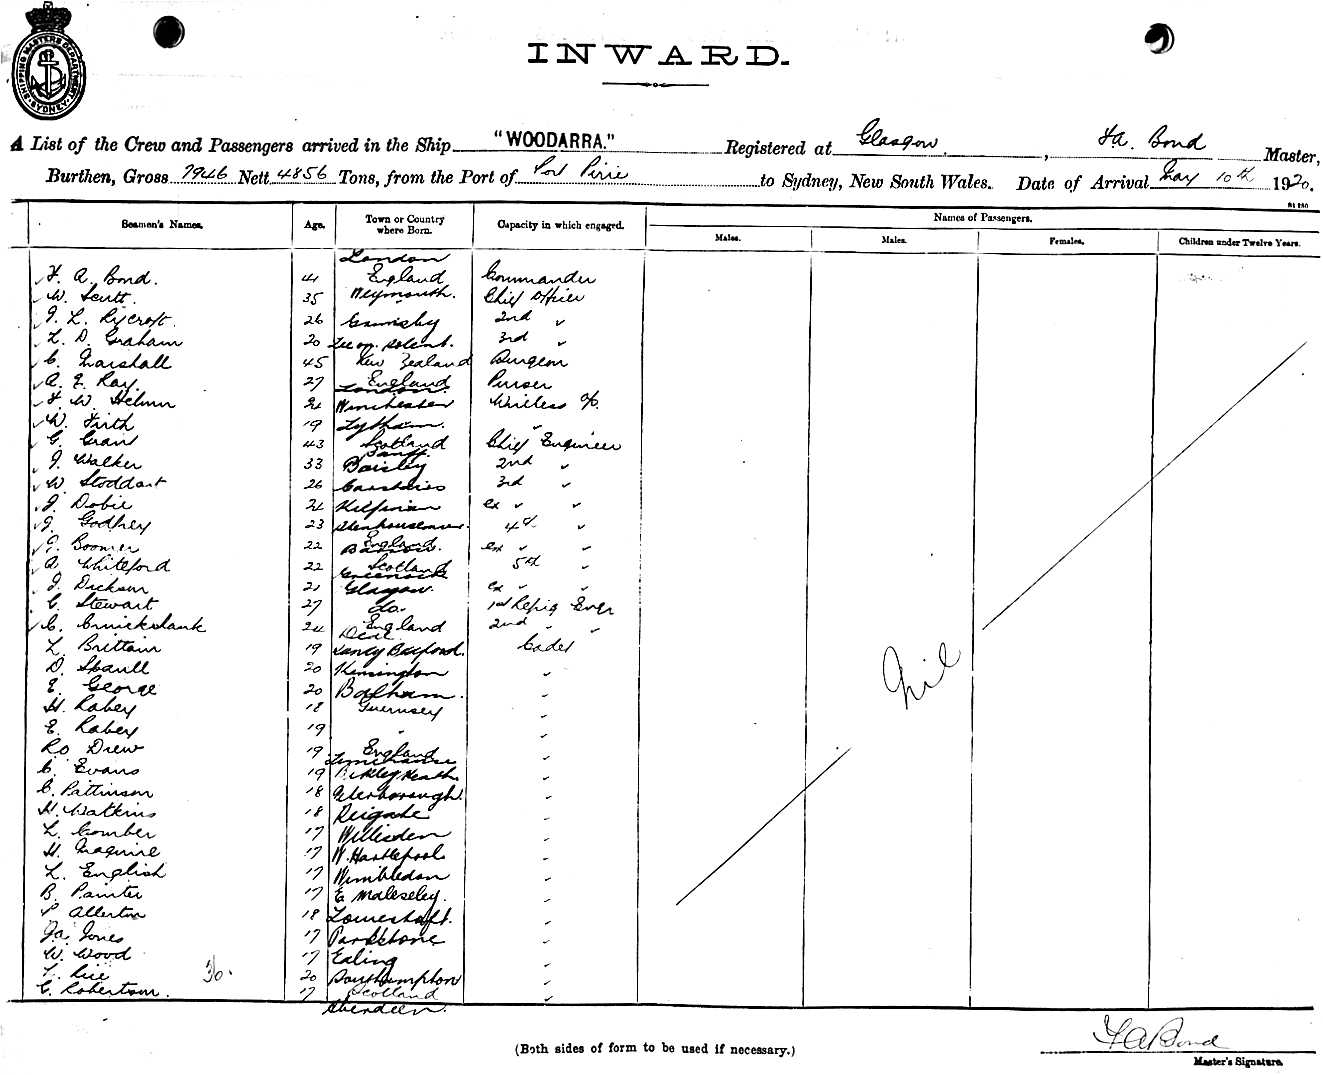 SHIPPING MASTERS DEPARTMENT SYDNEY
INWARD.
A List of the Crew and Passengers arrived in the Ship "WOODARRA." Registered at Glasgow, F. A. Bond Master,
Burthen, Gross 7946 Nett 4856 Tons, from the Port of Port Pirie to Sydney, New South Wales. Date of Arrival May 10th 1920.
Seamen's Names. Age. Town or Country where Born. Capacity in which engaged. Names of Passengers.
Males. Males. Females. Children under Twelve Years.
London
F. A. Bond. 41 England Commander
W. Scutt 35 Weymouth. Chief Officer
J. L. Rycroft. 26 Grimsby 2nd "
L. D. Graham 20 Lee on Solent. 3rd "
C. Marshall 45 New Zealand Surgeon
A. E. Ray. 27 England London. Purser
F. W. Helmn 21 Winchester Wireless O/p.
W. Firth 19 Lytham. "
G. Grant 43 Scotland Banff. Chief Engineer
J. Walker 33 Paisley 2nd "
W. Stoddart 26 Carstairs 3rd "
J. Dobie 21 ex " "
J. Godfrey 23 Stenhousemuir. 4th "
J. Boomer 22 England. ex " "
A. Whiteford 22 Scotland Greenock 5th "
J. Dickson 21 Glasgow. ex " "
C. Stewart 27 do. 1st Refrig Engr
C. Cruickshank 24 England Deal 2nd " "
L. Brittain 19 Cadet
D. Spaull 20 Kensington "
E. George 20 Balham. "
H. Robey 18 Guernsey "
E. Robey 19 " "
Ro Drew 19 England Limehouse "
C. Evans 19 Bexley Heath. "
C. Pattinson 18 Peterborough. "
H. Watkins 18 Reigate "
L. Comber 17 Willesden "
H. Maguire 17 W. Hartlepool "
L. English 17 Wimbledon "
B. Painter 17 E Moleseley. "
P Allerton 18 Lowestoft. "
J. A. Jones 17 Parkstone "
W. Wood 17 Ealing "
L. Rice 20 Southampton "
C. Robertson. 17 Scotland Aberdeen. "
36.
Nil
(Both sides of form to be used if necessary.)
F A Bond
Master's Signature.